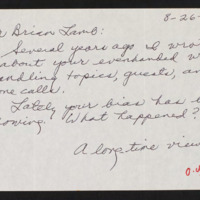 8-26-
Brian Lamb:
Several years ago I wro
about your evenhanded w
andling topics, guests, an
one calls.
Lately your bias has b
owing. What happened?
A long time view